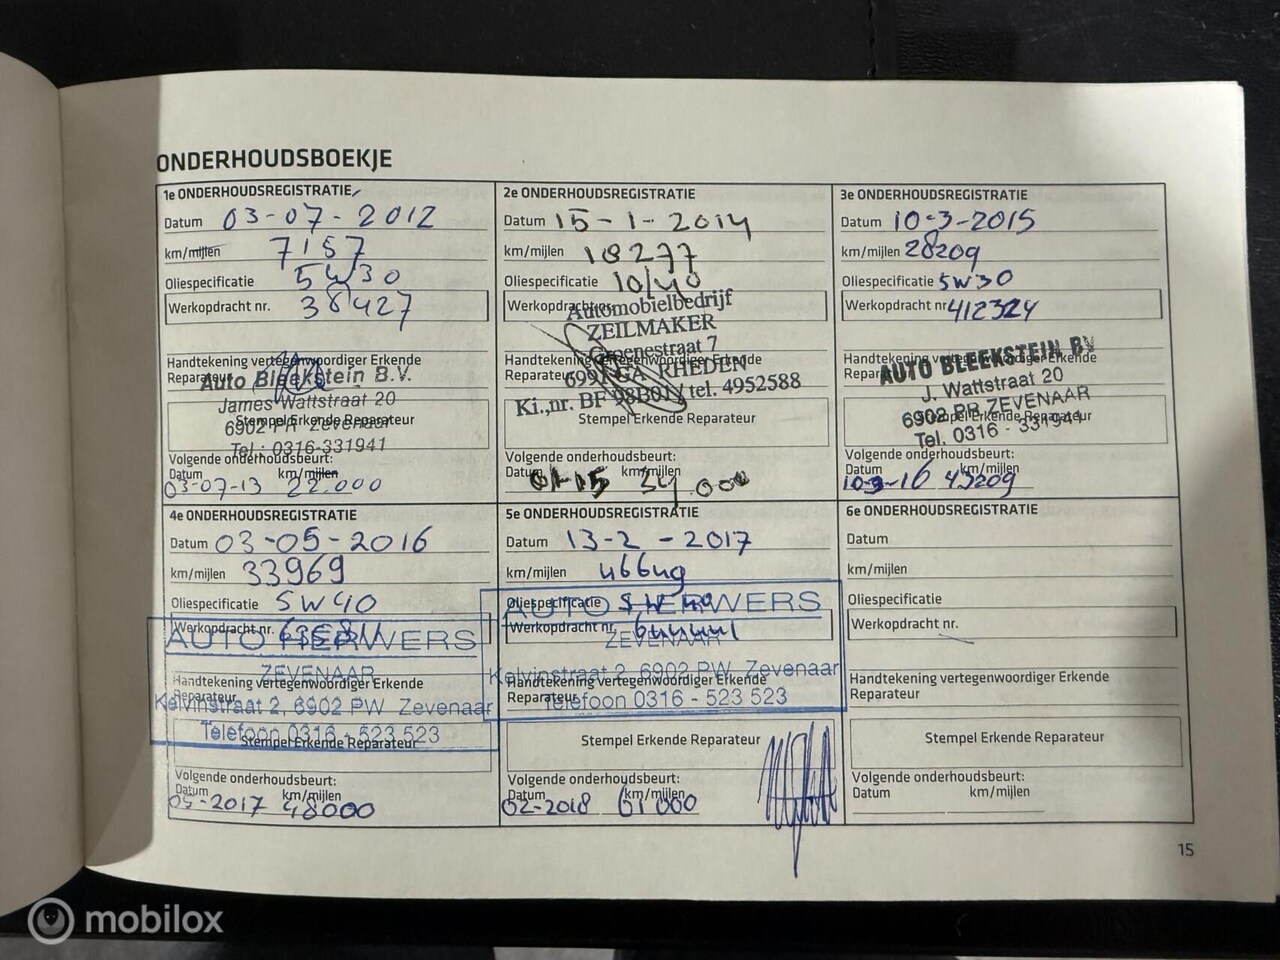 ONDERHOUDSBOEKJE
1e ONDERHOUDSREGISTRATIE
Datum 03-07-2012
km/mijlen 7157
Oliespecificatie 5W30
Werkopdracht nr. 38427
Handtekening vertegenwoordiger Erkende
Reparateur
Auto Bleekstein B.V.
James Wattstraat 20
6902 PR Zevenaar
Stempel Erkende Reparateur
Tel.: 0316-331941
Volgende onderhoudsbeurt:
Datum km/mijlen
03-07-13 22.000
2e ONDERHOUDSREGISTRATIE
Datum 15-1-2014
km/mijlen 18277
Oliespecificatie 10/40
Werkopdracht nr.
Automobielbedrijf
ZEILMAKER
Groenestraat 7
Handtekening vertegenwoordiger Erkende
Reparateur
6991 GA RHEDEN
Ki.,nr. BF 98B01 tel. 4952588
Stempel Erkende Reparateur
Volgende onderhoudsbeurt:
Datum km/mijlen
01-15 34.000
3e ONDERHOUDSREGISTRATIE
Datum 10-3-2015
km/mijlen 28209
Oliespecificatie 5W30
Werkopdracht nr. 412324
Handtekening vertegenwoordiger Erkende
Reparateur
AUTO BLEEKSTEIN BV
J. Wattstraat 20
6902 PR ZEVENAAR
Stempel Erkende Reparateur
Tel. 0316 - 331941
Volgende onderhoudsbeurt:
Datum km/mijlen
10-3-16 43209
4e ONDERHOUDSREGISTRATIE
Datum 03-05-2016
km/mijlen 33969
Oliespecificatie 5W40
Werkopdracht nr.
AUTO HERWERS
ZEVENAAR
Handtekening vertegenwoordiger Erkende
Reparateur
Kelvinstraat 2, 6902 PW Zevenaar
Telefoon 0316 - 523 523
Stempel Erkende Reparateur
Volgende onderhoudsbeurt:
Datum km/mijlen
05-2017 48000
5e ONDERHOUDSREGISTRATIE
Datum 13-2-2017
km/mijlen 46649
Oliespecificatie 5W40
AUTO HERWERS
Werkopdracht nr.
ZEVENAAR
Kelvinstraat 2, 6902 PW Zevenaar
Handtekening vertegenwoordiger Erkende
Reparateur
Telefoon 0316 - 523 523
Stempel Erkende Reparateur
Volgende onderhoudsbeurt:
Datum km/mijlen
02-2018 61000
6e ONDERHOUDSREGISTRATIE
Datum
km/mijlen
Oliespecificatie
Werkopdracht nr.
Handtekening vertegenwoordiger Erkende
Reparateur
Stempel Erkende Reparateur
Volgende onderhoudsbeurt:
Datum km/mijlen
15
mobilox